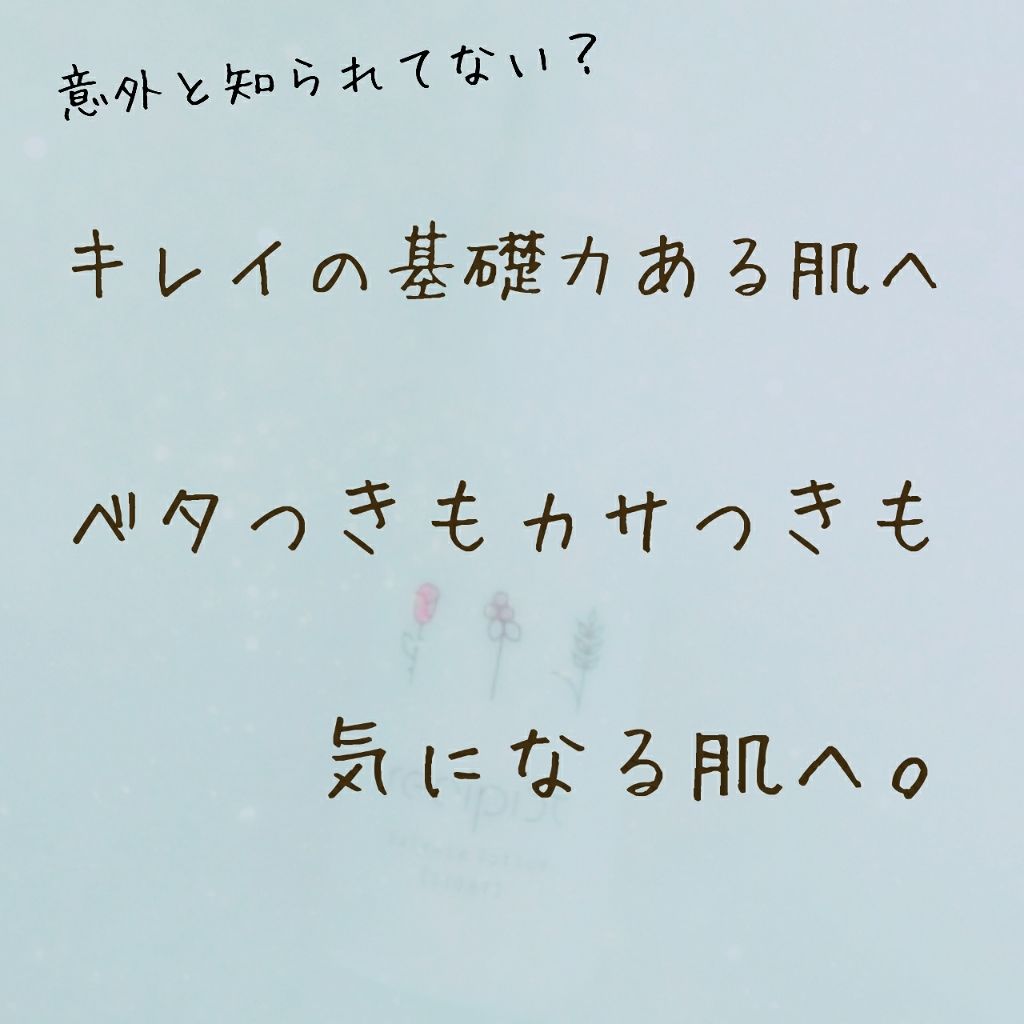 意外と知られてない？
キレイの基礎力ある肌へ
ベタつきもカサつきも
気になる肌へ。